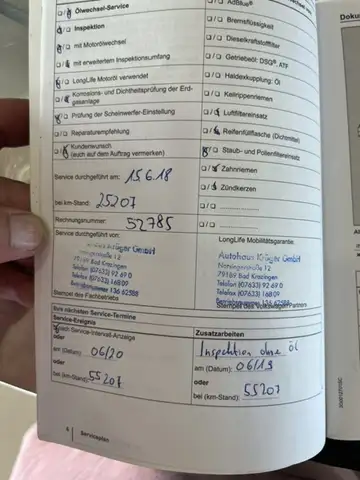 Ölwechsel-Service
Inspektion
mit Motorölwechsel
mit erweitertem Inspektionsumfang
LongLife Motoröl verwendet
Korrosions- und Dichtheitsprüfung der Erd-
gasanlage
Prüfung der Scheinwerfer-Einstellung
Reparaturempfehlung
Kundenwunsch
(euch auf dem Auftrag vermerken)
Service durchgeführt am: 15.6.18
bei km-Stand: 25207
Rechnungsnummer: 52785
Service durchgeführt von:
Krüger GmbH
12
79189 Bad Krozingen
Telefon (07633) 92 69 0
Telefax (07633) 168 09
Betriebsnummer 136 62588
Stempel des Fachbetriebs
AdBlue®
Bremsflüssigkeit
Dieselkraftstofffilter
Getriebeöl: DSG®, ATF
Haldexkupplung: Öl
Keilrippenriemen
Luftfiltereinsatz
Reifenfüllflasche (Dichtmittel)
Staub- und Pollenfiltereinsatz
Zahnriemen
Zündkerzen
LongLife Mobilitätsgarantie:
Autohaus Krüger GmbH
12
79189 Bad Krozingen
Telefon (07633) 92 69 0
Telefax (07633) 168 09
Betriebsnummer 136 62588
Stempel des Volkswagen Partners
Ihre nächsten Service-Termine
Service-Ereignis
nach Service-Intervall-Anzeige
oder
am (Datum): 06/20
oder
bei (km-Stand): 55207
Zusatzarbeiten
Inspektion ohne Öl
am (Datum): 06/19
oder
bei (km-Stand): 55207
6 Serviceplan
Doku